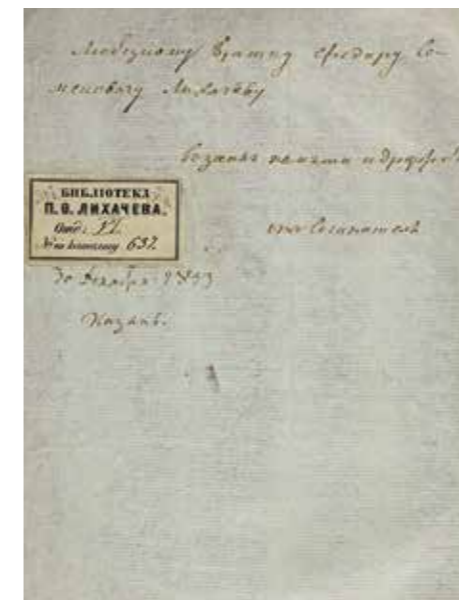 Любезному Братцу Федору Се-
меновичу Лихачеву
Въ знакъ памяти и дружбы
отъ Сочинителя
БИБЛІОТЕКА
П. Ѳ. ЛИХАЧЕВА.
Отд: VI.
№ по каталогу 637.
30 Декабря
Казань.